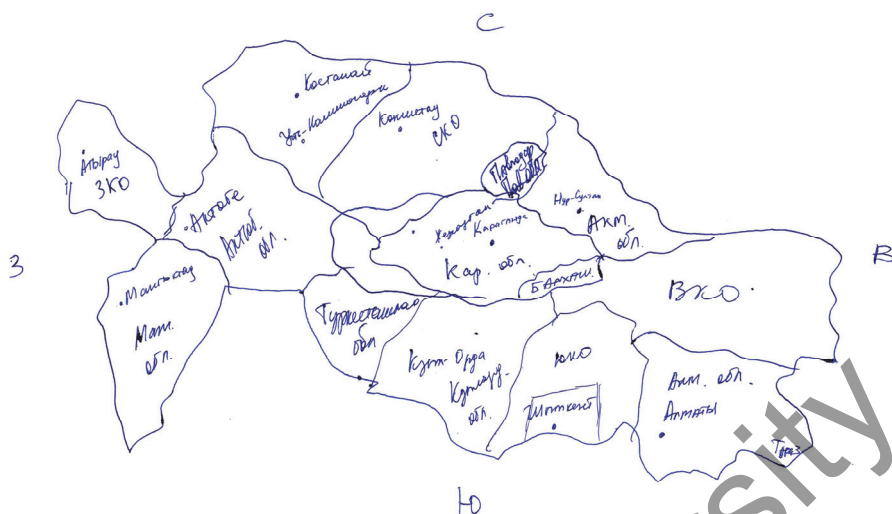 С
Костанай
Усть-Каменогорск
Кокшетау
СКО
Атырау
ЗКО
Павлодар
Пав. обл.
Нур-Султан
Акм.
обл.
Актобе
Актоб.
обл.
Жезказган
Караганда
Кар. обл.
З
В
Балхаш.
ВКО
Мангистау
Ман.
обл.
Туркестанская
обл
Кзыл-Орда
Кзылорд.
обл.
ЮКО
Шымкент
Алм. обл.
Алматы
Тараз
Ю
ersity